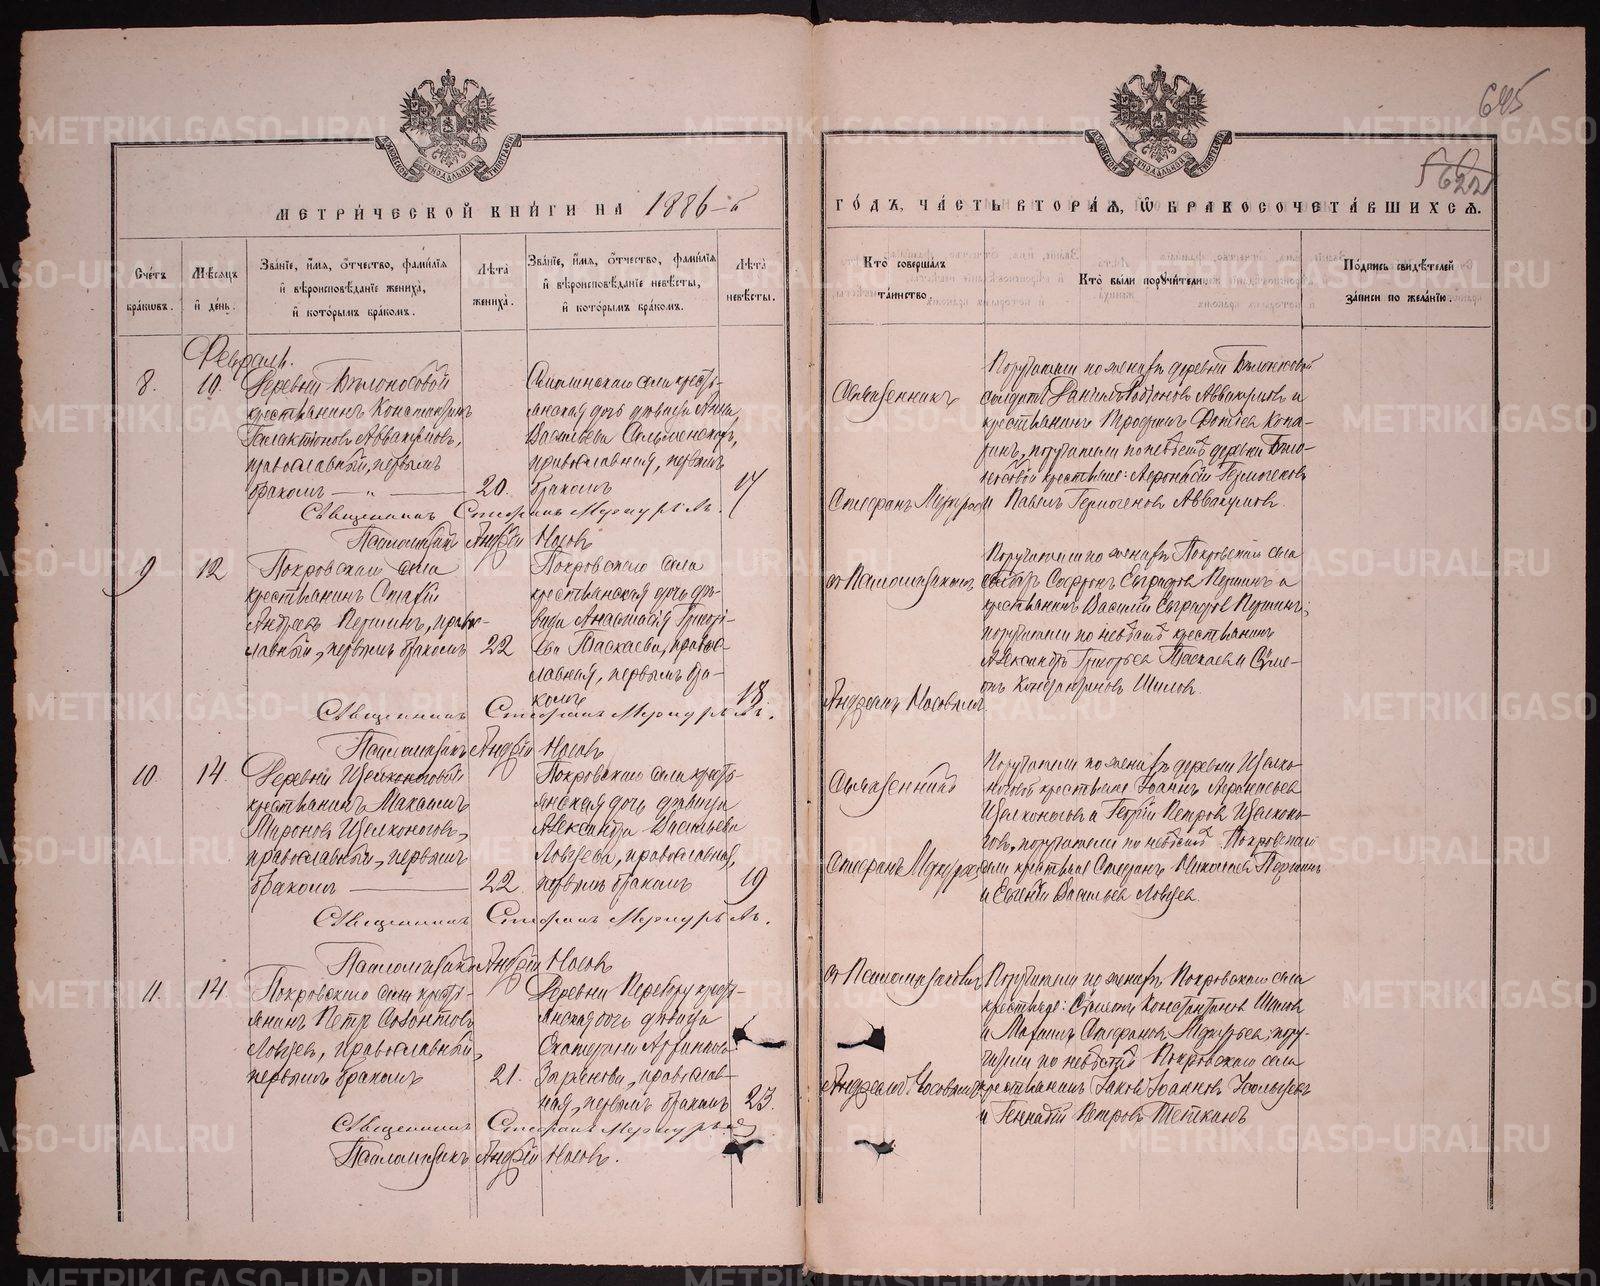 645
562
622
МЕТРИЧЕСКОЙ КНИГИ НА 1886-й
ГОДЪ, ЧАСТЬ ВТОРАЯ, Ѡ БРАКОСОЧЕТАВШИХСЯ.
Счетъ браковъ.
Мѣсяцъ и день.
Званіе, имя, отчество, фамилія и вѣроисповѣданіе жениха, и которымъ бракомъ.
Лѣта жениха.
Званіе, имя, отчество, фамилія и вѣроисповѣданіе невѣсты, и которымъ бракомъ.
Лѣта невѣсты.
Кто совершалъ таинство.
Кто были поручители.
Подпись свидѣтелей записи по желанію.
Февраль.
8.
10.
Деревни Бѣлоносовой
крестьянинъ Константинъ
Галактіоновъ Аввакумовъ,
православный, первымъ
бракомъ — „ —
20.
крестьянская дочь девица Анна
Васильева
православная, первымъ
бракомъ
17
Священникъ
Стефанъ Меркурьевъ
Поручители по женихѣ деревни Бѣлоносовой
солдатъ Данилъ Родіоновъ Аввакумовъ и
крестьянинъ Трофимъ Фотіевъ
поручители по невѣстѣ деревни Бѣлоносовой
крестьяне: Афонасій Гермогеновъ
и Павелъ Гермогеновъ Аввакумовъ.
Священникъ Стефанъ Меркурьевъ.
Псаломщикъ Андрей Носовъ
9
12
Покровскаго села
крестьянинъ
Андреевъ Першинъ, православный,
первымъ бракомъ
22
Покровскаго села
крестьянская дочь девица
Анастасія Григорьева
Таскаева, православная,
первымъ бракомъ
18
съ Псаломщикомъ
Андреемъ Носовымъ
Поручители по женихѣ Покровскаго села
Софронъ Першинъ и
крестьянинъ Василій Першинъ;
поручители по невѣстѣ крестьянинъ
Александръ Григорьевъ Таскаевъ и Симеонъ
Кондратьяновъ Шиловъ.
Священникъ Стефанъ Меркурьевъ.
Псаломщикъ Андрей Носовъ
10.
14.
Деревни Щелконоговой
крестьянинъ Максимъ
Мироновъ Щелконоговъ,
православный, первымъ
бракомъ —
22.
Покровскаго села крестьянская
дочь девица
Александра Васильева
православная,
первымъ бракомъ
19
Священникъ
Стефанъ Меркурьевъ
Поручители по женихѣ деревни Щелконоговой
крестьяне Іоаннъ Афонасьевъ
Щелконоговъ и Георгій Петровъ Щелконоговъ,
поручители по невѣстѣ Покровскаго
села крестьяне Стефанъ Николаевъ Першинъ
и Евгеній Васильевъ
Священникъ Стефанъ Меркурьевъ.
Псаломщикъ Андрей Носовъ
11.
14.
Покровскаго села крестьянинъ
Петръ
православный,
первымъ бракомъ
21.
Деревни крестьянская
дочь девица
Екатерина
православная,
первымъ бракомъ
23.
съ Псаломщикомъ
Андреемъ Носовымъ
Поручители по женихѣ Покровскаго села
крестьяне: Симеонъ Шиловъ
и Михаилъ Стефановъ Меркурьевъ; поручители
по невѣстѣ Покровскаго села
крестьянинъ Іаковъ Іоанновъ
и Геннадій Петровъ
Священникъ Стефанъ Меркурьевъ
Псаломщикъ Андрей Носовъ.
METRIKI.GASO-URAL.RU